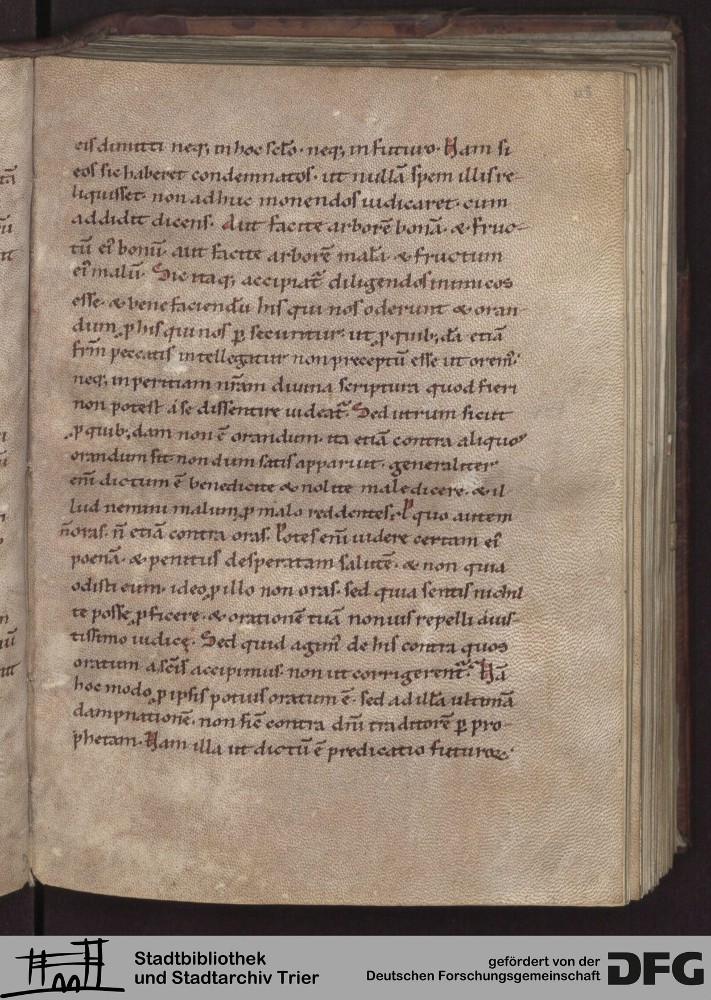 eis dimitti neq; in hoc sclo · neq; in futuro · Nam si
eos sic haberet condemnatos · ut nullā spem illis re-
liquisset · non adhuc monendos iudicaret · cum
addidit dicens · Aut facite arborē bonā · & fruc-
tū ei' bonū · aut facite arborē malā · & fructum
ei' malū · Sic itaq; accipiat' diligendos inimicos
esse · & bene faciendū his qui nos oderunt & oran-
dum ꝓ his qui nos ꝑsecuntur · ut ꝓ quib;dā etiā
frm̄ peccatis intellegatur non preceptū esse ut orem';
neq; in peritiam nr̄am diuina scriptura quod fieri
non potest a se dissentire uideat' · Sed utrum sicut
ꝓ quib;dam non ē orandum · ita etiā contra aliquos
orandum sit · non dum satis apparuit · generaliter
enī dictum ē benedicite & nolite maledicere · & il-
lud nemini malum ꝓ malo reddentes · Pro quo autem
n̄ oras · n̄ etiā contra oras · Potes enī uidere certam ei'
poenā · & penitus desperatam salutē · & non quia
odisti eum · ideo ꝓ illo non oras · sed quia sentis nichil
te posse ꝓficere · & orationē tuā non uis repelli a ius-
tissimo iudicę · Sed quid agim' de his contra quos
oratum a scīs accipimus · non ut corrigerent' · Nā
hoc modo ꝓ ipsis potius oratum ē · sed ad illā ultimā
dampnationē · non sic̄ contra dnī traditorē ꝑ pro-
phetam · Nam illa ut dictū ē predicatio futuroꝝ
Stadtbibliothek
und Stadtarchiv Trier
gefördert von der
Deutschen Forschungsgemeinschaft
DFG